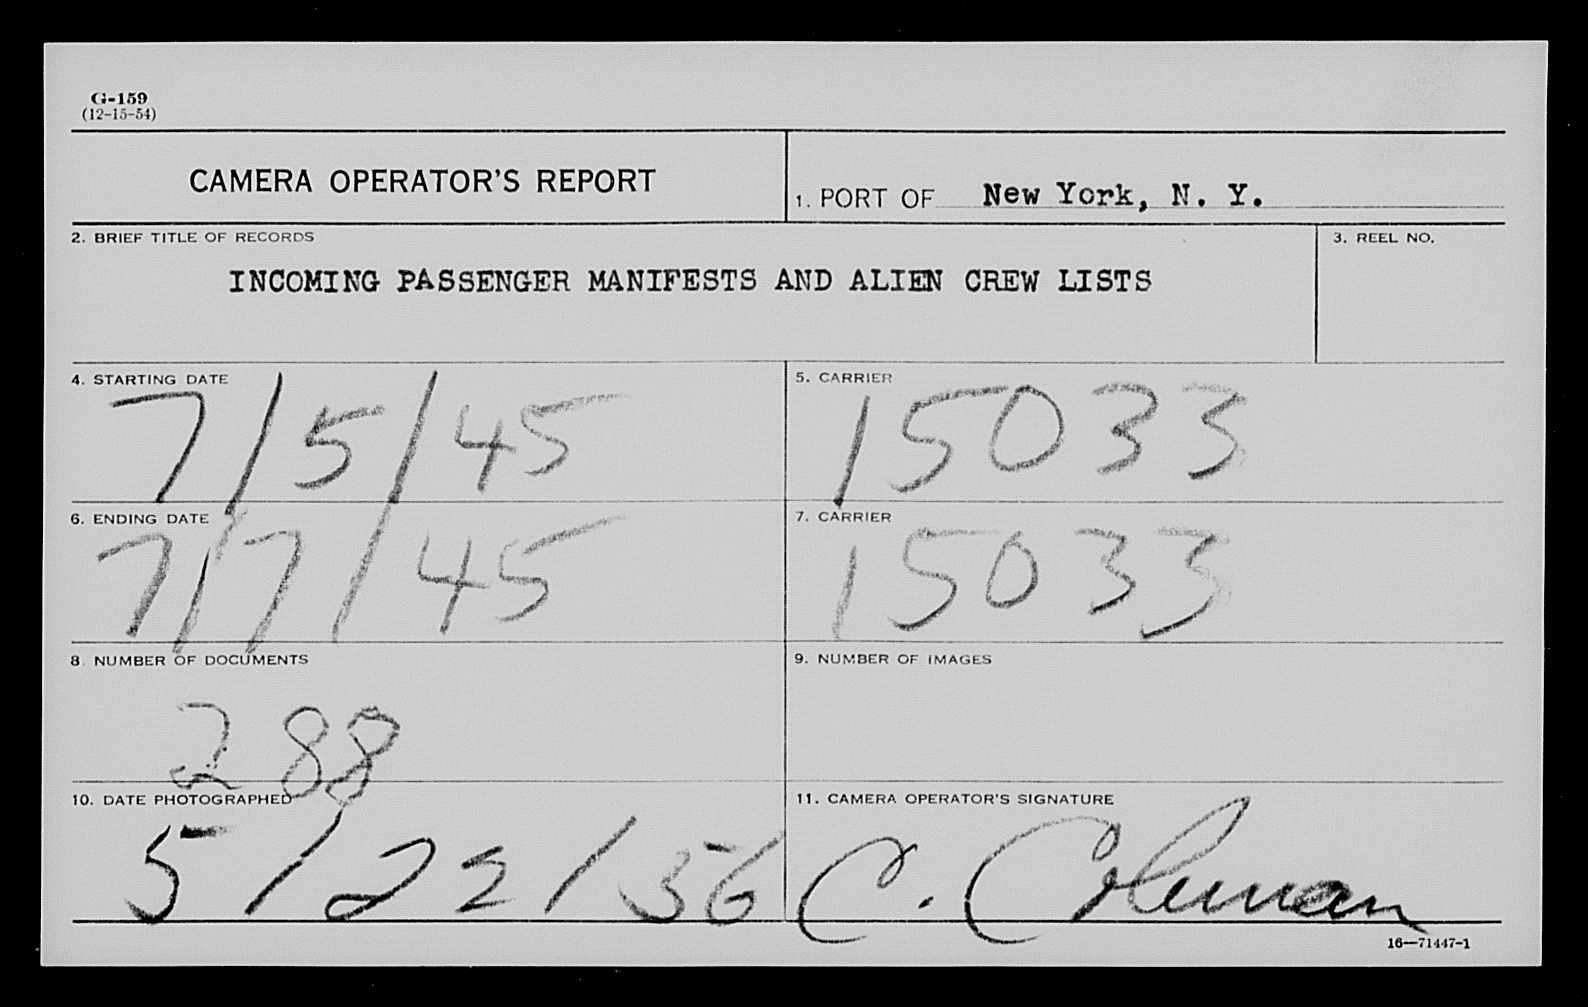 G-159
(12-15-54)
CAMERA OPERATOR'S REPORT
1. PORT OF New York, N. Y.
2. BRIEF TITLE OF RECORDS
3. REEL NO.
INCOMING PASSENGER MANIFESTS AND ALIEN CREW LISTS
4. STARTING DATE
7/5/45
5. CARRIER
15033
6. ENDING DATE
7/7/45
7. CARRIER
15033
8. NUMBER OF DOCUMENTS
288
9. NUMBER OF IMAGES
10. DATE PHOTOGRAPHED
5/22/56
11. CAMERA OPERATOR'S SIGNATURE
C. Coleman
16—71447-1